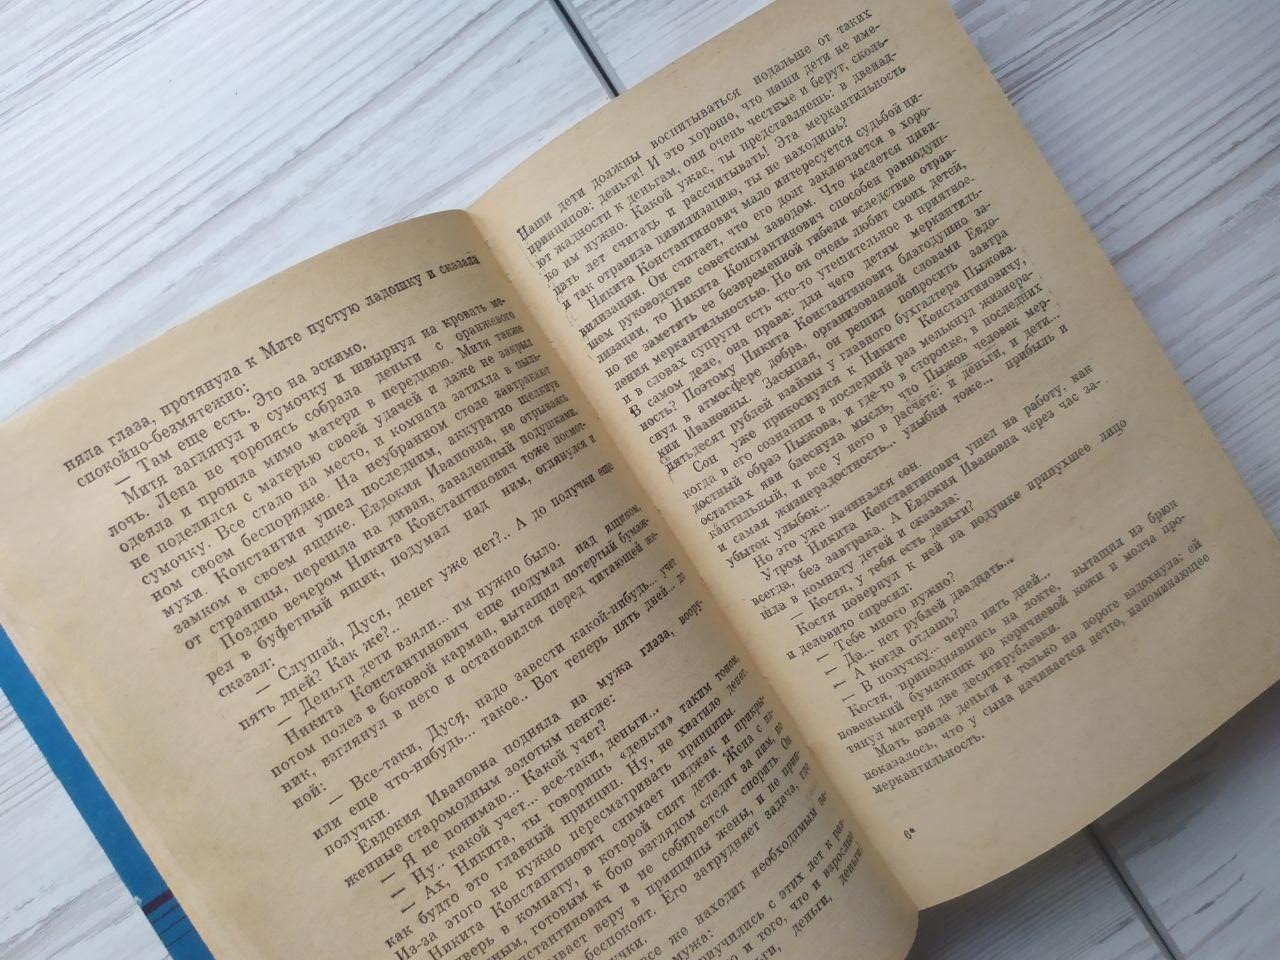 няла глаза, протянула к Мите пустую ладошку и сказала
спокойно-безмятежно:
— Там еще есть. Это на эскимо.
Митя заглянул в сумочку и швырнул на кровать ме-
лочь. Лена не торопясь собрала деньги с оранжевого
одеяла и прошла мимо матери в переднюю. Митя также
не поделился с матерью своей удачей и даже не закрыл
сумочку. Все стало на место, и комната затихла в пыль-
ном своем беспорядке. На неубранном столе завтракают
мухи. Константин ушел последним, аккуратно щелкнув
замком в своем ящике. Евдокия Ивановна, не отрываясь
от страницы, перешла на диван, заваленный подушками.
Поздно вечером Никита Константинович тоже посмот-
рел в буфетный ящик, подумал над ним, оглянулся и
сказал:
— Слушай, Дуся, денег уже нет?.. А до получки еще
пять дней? Как же?..
— Деньги дети взяли... им нужно было.
Никита Константинович еще подумал над ящиком,
потом полез в боковой карман, вытащил потертый бумаж-
ник, взглянул в него и остановился перед читающей же-
ной:
— Все-таки, Дуся, надо завести какой-нибудь... учет
или еще что-нибудь... такое.. Вот теперь пять дней... до
получки.
Евдокия Ивановна подняла на мужа глаза, воору-
женные старомодным золотым пенсне:
— Я не понимаю... Какой учет?
— Ну.. какой учет... все-таки, деньги...
— Ах, Никита, ты говоришь «деньги» таким тоном,
как будто это главный принцип Ну, не хватило денег.
Из-за этого не нужно пересматривать принципы.
Никита Константинович снимает пиджак и прикры-
дверь в комнату, в которой спят дети. Жена с
ным, готовым к бою взглядом следит за ним, но
Константинович и не собирается спорить. Он
веру в принципы жены, и не прин-
беспокоят. Его затрудняет задача, где
же находит необходимый
мужа:
приучились с этих лет к
и того, что и взрослые
деньги,
Наши дети должны воспитываться подальше от таких
принципов: деньги! И это хорошо, что наши дети не име-
ют жадности к деньгам, они очень честные и берут, сколь-
ко им нужно. Какой ужас, ты представляешь: в двенад-
цать лет считать и рассчитывать! Эта меркантильность
и так отравила цивилизацию, ты не находишь?
Никита Константинович мало интересуется судьбой ци-
вилизации. Он считает, что его долг заключается в хоро-
шем руководстве советским заводом Что касается циви-
лизации, то Никита Константинович способен равнодуш-
но не заметить ее безвременной гибели вследствие отрав-
ления меркантильностью. Но он очень любит своих детей,
и в словах супруги есть что-то утешительное и приятное.
В самом деле, она права: для чего детям меркантиль-
ность? Поэтому Никита Константинович благодушно за-
снул в атмосфере добра, организованной словами Евдо-
кии Ивановны. Засыпая, он решил попросить завтра
пятьдесят рублей взаймы у главного бухгалтера Пыжова.
Сон уже прикоснулся к Никите Константиновичу,
когда в его сознании в последний раз мелькнул жизнера-
достный образ Пыжова, и где-то в сторонке, в последних
остатках яви блеснула мысль, что Пыжов человек мер-
кантильный, и все у него в расчете: и деньги, и дети...
и самая жизнерадостность... улыбки тоже... прибыль и
убыток улыбок...
Но это уже начинался сон.
Утром Никита Константинович ушел на работу, как
всегда, без завтрака. А Евдокия Ивановна через час за-
шла в комнату детей и сказала:
— Костя, у тебя есть деньги?
Костя повернул к ней на подушке припухшее лицо
и деловито спросил:
— Тебе много нужно?
— Да... лет рублей двадцать...
— А когда отдашь?
— В получку... через пять дней...
Костя, приподнявшись на локте, вытащил из брюк
новенький бумажник из коричневой кожи и молча про-
тянул матери две десятирублевки.
Мать взяла деньги и только на пороге вздохнула: ей
показалось, что у сына начинается нечто, напоминающее
меркантильность.
6*